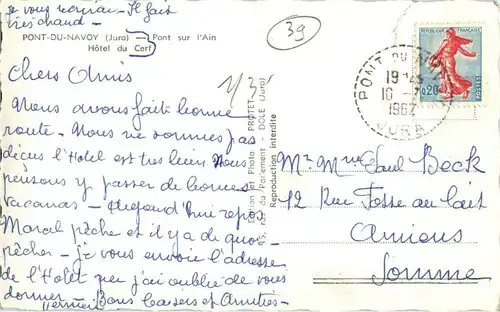 je vous
très chaud - Il fait
PONT-DU-NAVOY (Jura) - Pont sur l'Ain
Hôtel du Cerf
39
1/3
Chers Amis
Nous avons fait bonne
route - Nous ne sommes pas
déçus l'Hôtel est très bien. Nous
pensons y passer de bonnes
vacances - Aujourd'hui repos
Marcel pêche et il y a de quoi
pêcher - je vous envoie l'adresse
de l'Hotel que j'ai oublié de vous
donner - Bons baisers et Amitiés -
Edition et Photo PROTET
du Parlement - DOLE (Jura)
Reproduction interdite
REPUBLIQUE FRANÇAISE
0,20
POSTES
PONT DU NAVOY
19 H 45
16 - 7
1962
JURA
Mr Mme Paul Beck
12 Rue Fosse au lait
Amiens
Somme